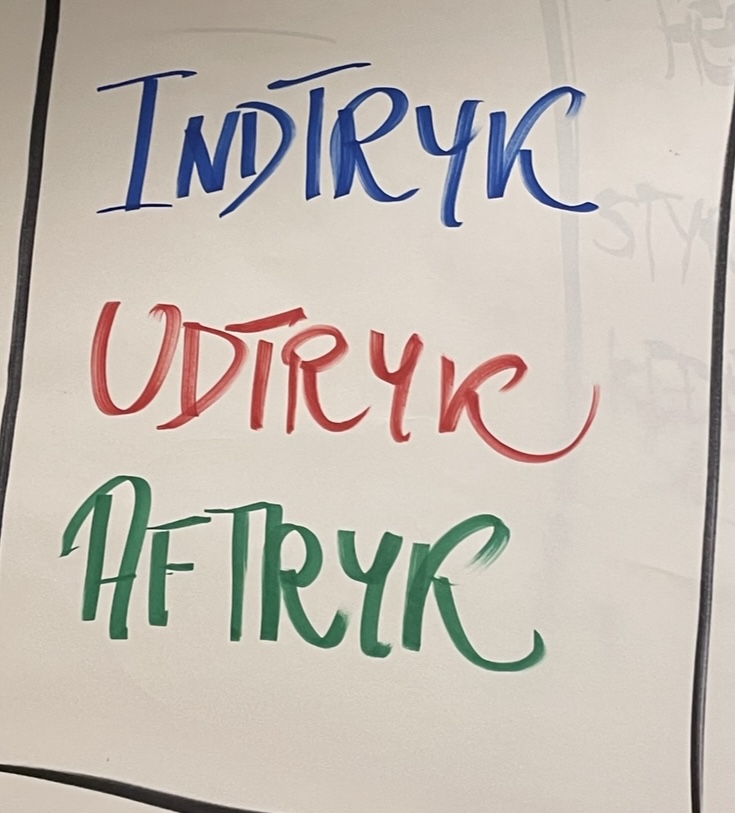 INDTRYK
UDTRYK
AFTRYK